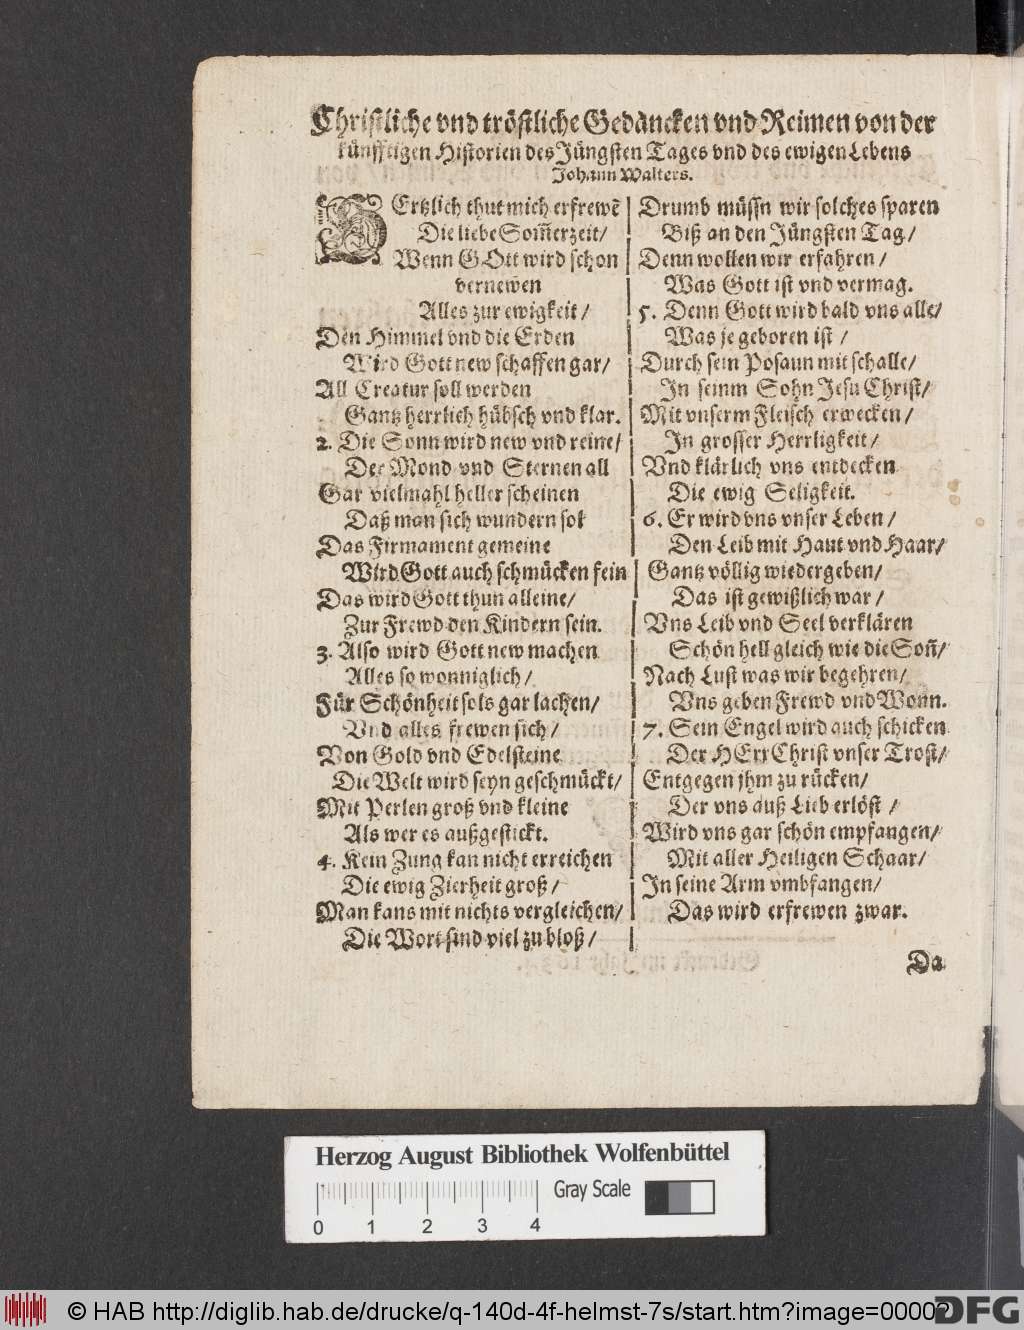 Christliche vnd tröstliche Gedäncken vnd Reimen von der
künfftigen Historien des Jüngsten Tages vnd des ewigen Lebens
Johann Walters.
HErtzlich thut mich erfrewē
Die liebe Som̄erzeit/
Wenn GOtt wird schon
vernewen
Alles zur ewigkeit/
Den Himmel vnd die Erden
Wird Gott new schaffen gar/
All Creatur soll werden
Gantz herrlich hübsch vnd klar.
2. Die Sonn wird new vnd reine/
Der Mond vnd Sternen all
Gar vielmahl heller scheinen
Daß man sich wundern sol
Das Firmament gemeine
Wird Gott auch schmücken fein
Das wird Gott thun alleine/
Zur Frewd den Kindern sein.
3. Also wird Gott new machen
Alles so wonniglich/
Für Schönheit sols gar lachen/
Vnd alles frewen sich/
Von Gold vnd Edelsteine
Die Welt wird seyn geschmückt/
Mit Perlen groß vnd kleine
Als wer es außgestickt.
4. Kein Zung kan nicht erreichen
Die ewig Zierheit groß/
Man kans mit nichts vergleichen/
Die Wort sind viel zu bloß/
Drumb müssn wir solches sparen
Biß an den Jüngsten Tag/
Denn wollen wir erfahren/
Was Gott ist vnd vermag.
5. Denn Gott wird bald vns alle/
Was je geboren ist/
Durch sein Posaun mit schalle/
In seinm Sohn Jesu Christ/
Mit vnserm Fleisch erwecken/
In grosser Herrligkeit/
Vnd klärlich vns entdecken
Die ewig Seligkeit.
6. Er wird vns vnser Leben/
Den Leib mit Haut vnd Haar/
Gantz völlig wiedergeben/
Das ist gewißlich war/
Vns Leib vnd Seel verklären
Schön hell gleich wie die Son̄/
Nach Lust was wir begehren/
Vns geben Frewd vnd Wonn.
7. Sein Engel wird auch schicken
Der HErr Christ vnser Trost/
Entgegen jhm zu rücken/
Der vns auß Lieb erlöst/
Wird vns gar schön empfangen/
Mit aller Heiligen Schaar/
In seine Arm vmbfangen/
Das wird erfrewen zwar.
Da
Herzog August Bibliothek Wolfenbüttel
Gray Scale
0 1 2 3 4
© HAB http://diglib.hab.de/drucke/q-140d-4f-helmst-7s/start.htm?image=00002
DFG